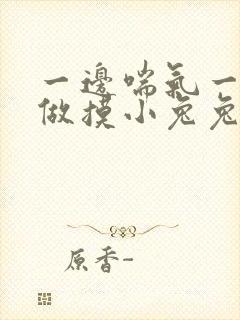 一邊喘氣一
做摸小兔兔
原香-